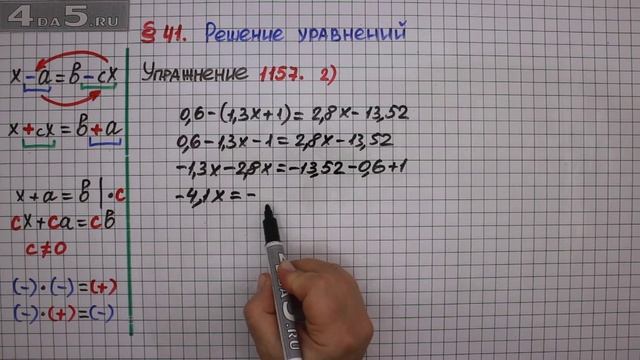 4DA5.RU
§ 41. Решение уравнений
Упражнение 1157. 2)
x-a=b-cx
x+cx=b+a
x+a=b|·c
cx+ca=cb
c≠0
(-)·(-)=(+)
(-)·(+)=(-)
0,6-(1,3x+1)=2,8x-13,52
0,6-1,3x-1=2,8x-13,52
-1,3x-2,8x=-13,52-0,6+1
-4,1x=-